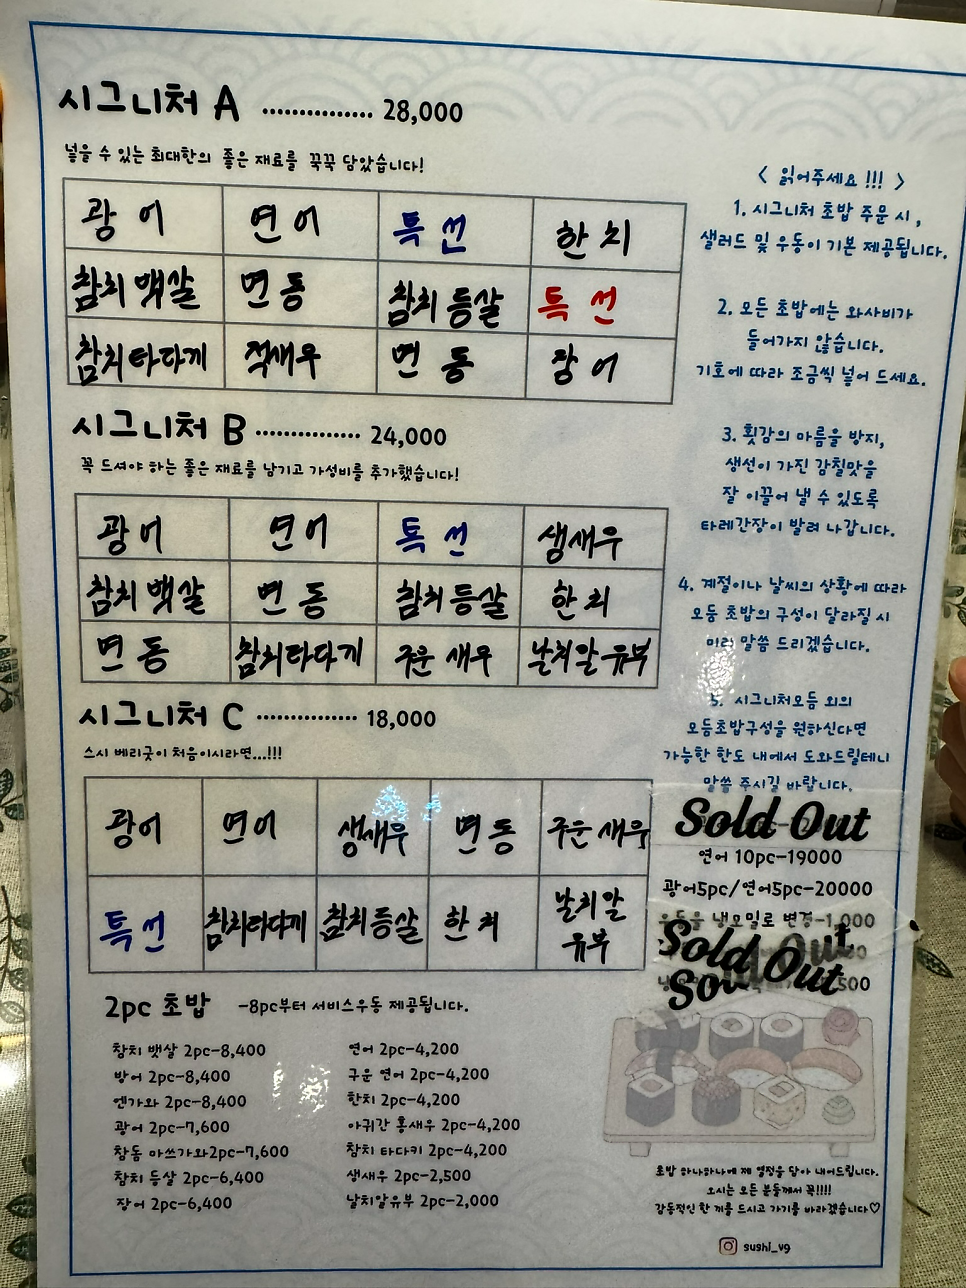 시그니처 A ............... 28,000
넣을 수 있는 최대한의 좋은 재료를 꾹꾹 담았습니다!
광어 연어 특선 한치
참치 뱃살 면동 참치 등살 특선
참치타다끼 적새우 면동 장어
시그니처 B ............... 24,000
꼭 드셔야 하는 좋은 재료를 남기고 가성비를 추가했습니다!
광어 연어 특선 생새우
참치 뱃살 면동 참치 등살 한치
면동 참치타다끼 구운 새우 날치알 유부
시그니처 C ............... 18,000
스시 베리굿이 처음이시라면...!!!
광어 연어 생새우 면동 구운 새우
특선 참치타다끼 참치등살 한치 날치알
유부
2pc 초밥 -8pc부터 서비스우동 제공됩니다.
참치 뱃살 2pc-8,400
방어 2pc-8,400
엔가와 2pc-8,400
광어 2pc-7,600
참돔 마쓰가와2pc-7,600
참치 등살 2pc-6,400
장어 2pc-6,400
연어 2pc-4,200
구운 연어 2pc-4,200
한치 2pc-4,200
아귀간 홍새우 2pc-4,200
참치 타다키 2pc-4,200
생새우 2pc-2,500
날치알유부 2pc-2,000
< 읽어주세요 !!! >
1. 시그니처 초밥 주문 시,
샐러드 및 우동이 기본 제공됩니다.
2. 모든 초밥에는 와사비가
들어가지 않습니다.
기호에 따라 조금씩 넣어 드세요.
3. 횟감의 마름을 방지,
생선이 가진 감칠맛을
잘 이끌어 낼 수 있도록
타레간장이 발려 나갑니다.
4. 계절이나 날씨의 상황에 따라
모둠 초밥의 구성이 달라질 시
미리 말씀 드리겠습니다.
5. 시그니처모듬 외의
모듬초밥구성을 원하신다면
가능한 한도 내에서 도와드릴테니
말씀 주시길 바랍니다.
Sold Out
연어 10pc-19000
광어5pc/연어5pc-20000
우동을 냉모밀로 변경-1,000
Sold Out
Sold Out
초밥 하나하나에 제 열정을 담아 내어드립니다.
오시는 모든 분들께서 꼭!!!!
감동적인 한 끼를 드시고 가기를 바라겠습니다♡
sushi_vg